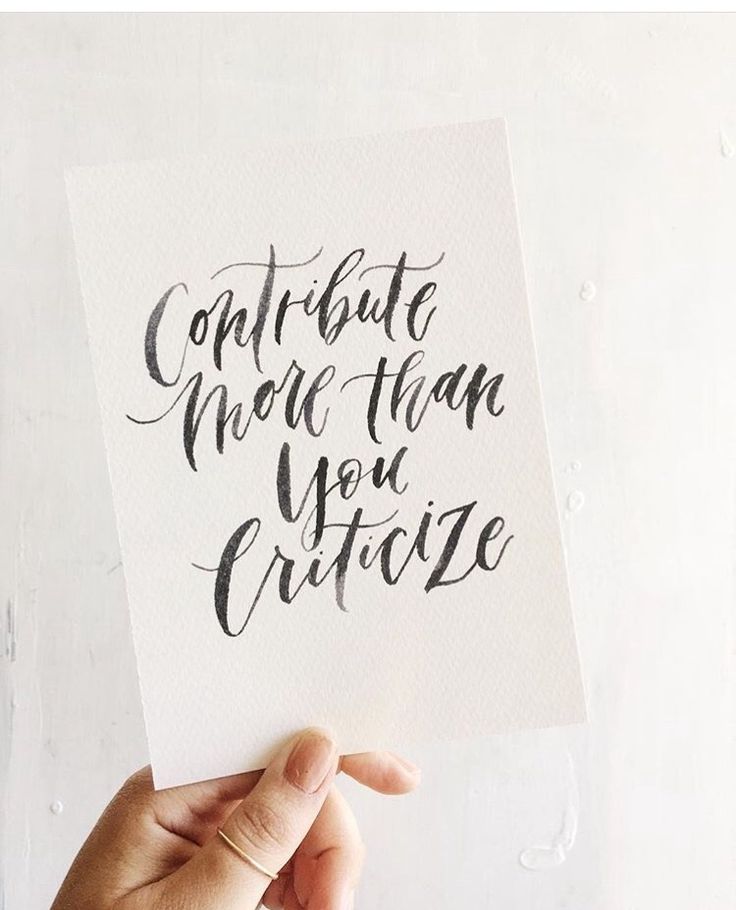 Contribute
more than
you
Criticize